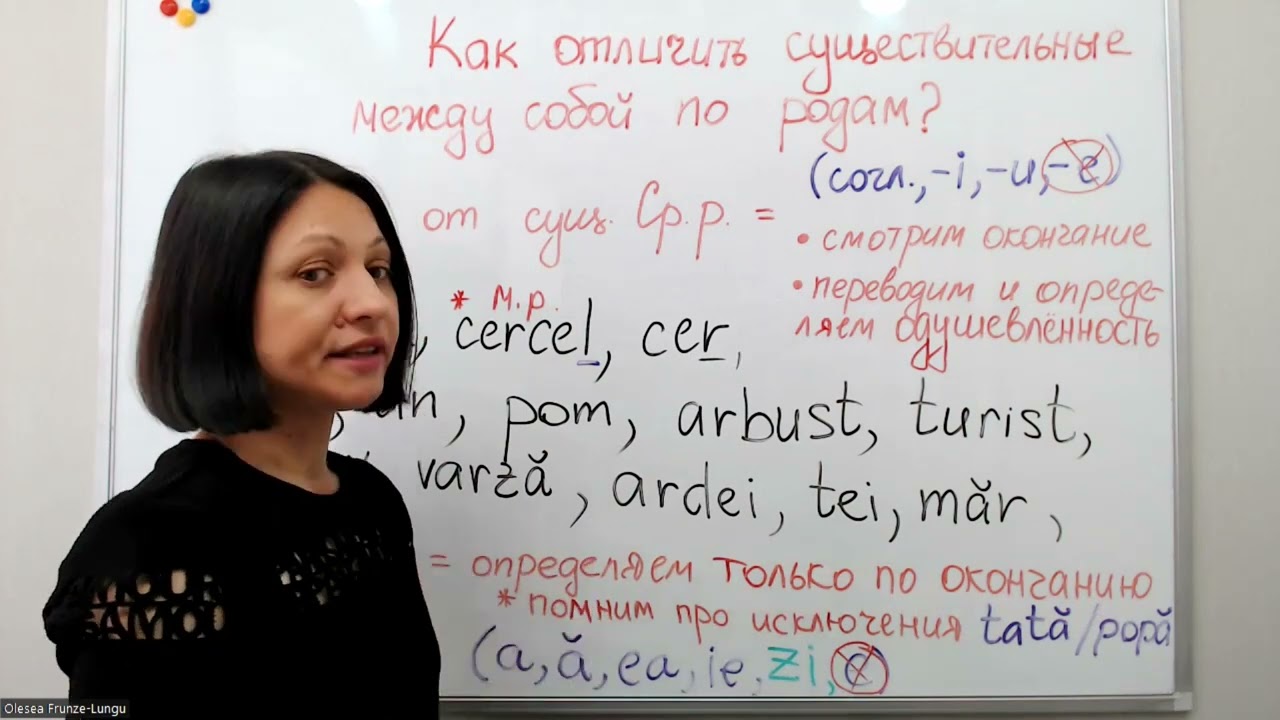 Как отличить существительные
между собой по родам?
(согл., -i, -u, -e)
от сущ. Ср.р. =
• смотрим окончание
• переводим и опреде-
ляем одушевлённость
* м.р.
, cercel, cer,
, pom, arbust, turist,
varză, ardei, tei, măr,
= определяем только по окончанию
* помним про исключения tată/popă
(a, ă, ea, ie, zi, e
AMOUR
SAMOU
Olesea Frunze-Lungu